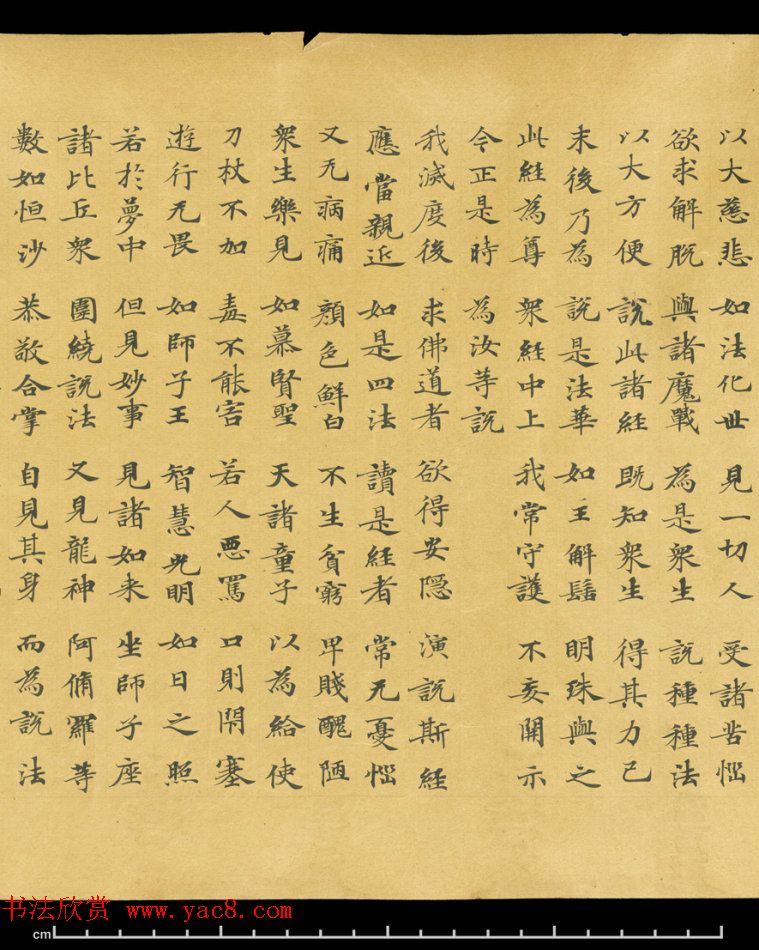 以大慈悲 如法化世 見一切人 受諸苦惱
欲求解脫 與諸魔戰 為是衆生 說種種法
以大方便 說此諸經 既知衆生 得其力已
末後乃為 說是法華 如王解髻 明珠與之
此經為尊 衆經中上 我常守護 不妄開示
今正是時 為汝等說
我滅度後 求佛道者 欲得安隱 演說斯經
應當親近 如是四法 讀是經者 常无憂惱
又无病痛 顏色鮮白 不生貧窮 卑賤醜陋
衆生樂見 如慕賢聖 天諸童子 以為給使
刀杖不加 毒不能害 若人惡罵 口則閉塞
遊行无畏 如師子王 智慧光明 如日之照
若於夢中 但見妙事 見諸如来 坐師子座
諸比丘衆 圍繞說法 又見龍神 阿脩羅等
數如恒沙 恭敬合掌 自見其身 而為說法
书法欣赏 www.yac8.com
cm